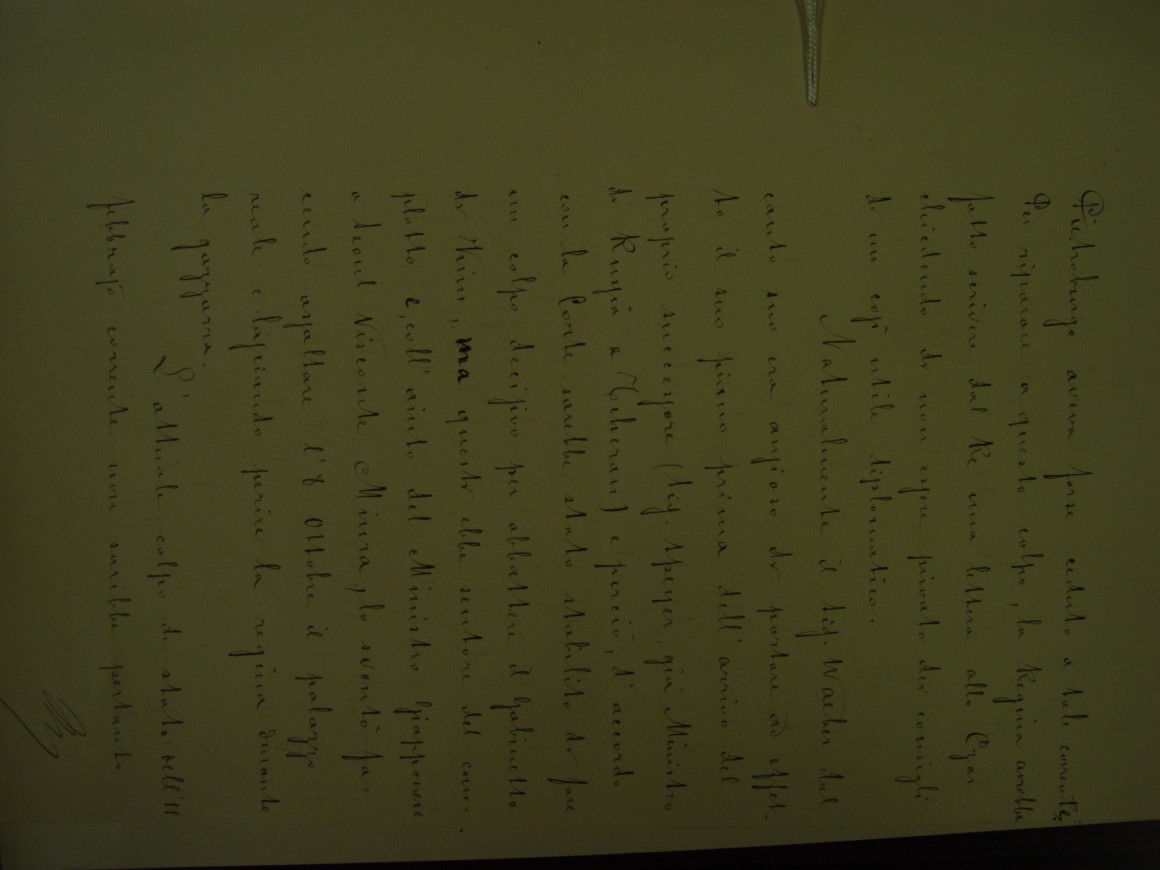 Pietroburgo aveva forse ceduto a tale corrente;
Per riparare a questo colpo, la Regina avrebbe
fatto scrivere dal Re una lettera allo Czar
chiedendo di non essere privato dei consigli
di un così utile diplomatico.
Naturalmente il Sig. Waeber dal
canto suo era ansioso di portare ad effet-
to il suo piano prima dell'arrivo del
proprio successore (Sig. Speyer, già Ministro
di Russia a Teheran) e perciò, d'accordo
con la Corte sarebbe stato stabilito di fare
un colpo decisivo per abbattere il Gabinetto
di Kim, ma questi ebbe sentore del com-
plotto e, coll'aiuto del Ministro Giapponese
a Seoul Visconte Miura, lo sventò fa-
cendo assaltare l'8 Ottobre il palazzo
reale e lasciando perire la regina durante
la gazzarra.
L'attuale colpo di stato dell'11
febbrajo corrente non sarebbe pertanto